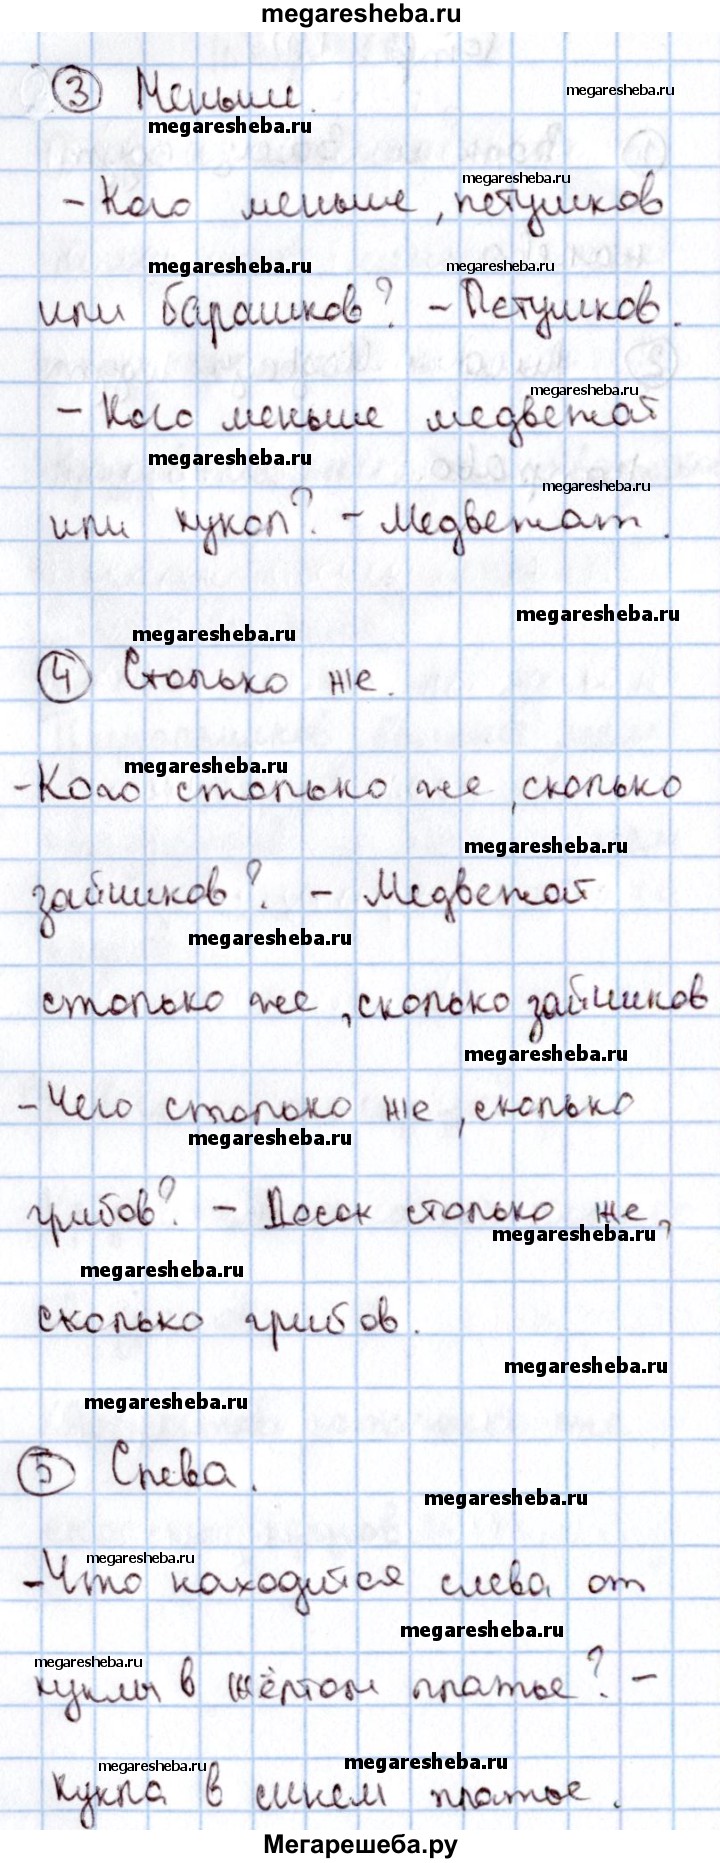 megaresheba.ru
③ Меньше.
megaresheba.ru
megaresheba.ru
megaresheba.ru
- Кого меньше, петушков
megaresheba.ru
megaresheba.ru
или барашков? - Петушков.
megaresheba.ru
- Кого меньше медвежат
megaresheba.ru
megaresheba.ru
или кукол? - Медвежат.
megaresheba.ru
megaresheba.ru
④ Столько же.
megaresheba.ru
- Кого столько же, сколько
megaresheba.ru
зайчиков? - Медвежат
megaresheba.ru
столько же, сколько зайчиков
megaresheba.ru
- Чего столько же, сколько
megaresheba.ru
грибов? - Досок столько же,
megaresheba.ru
megaresheba.ru
сколько грибов.
megaresheba.ru
megaresheba.ru
⑤ Слева.
megaresheba.ru
megaresheba.ru
- Что находится слева от
megaresheba.ru
megaresheba.ru
куклы в жёлтом платье? -
megaresheba.ru
megaresheba.ru
кукла в синем платье.
Мегарешеба.ру